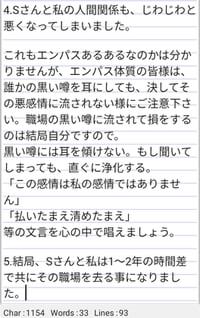 4.Sさんと私の人間関係も、じわじわと
悪くなってしまいました。
これもエンパスあるあるなのかは分か
りませんが、エンパス体質の皆様は、
誰かの黒い噂を耳にしても、決してそ
の悪感情に流されない様にご注意下さ
い。職場の黒い噂に流されて損をする
のは結局自分ですので。
黒い噂には耳を傾けない。もし聞いて
しまっても、直ぐに浄化する。
「この感情は私の感情ではありませ
ん」
「払いたまえ清めたまえ」
等の文言を心の中で唱えましょう。
5.結局、Sさんと私は1〜2年の時間差
で共にその職場を去る事になりまし
た。
Char : 1154 Words : 33 Lines : 93